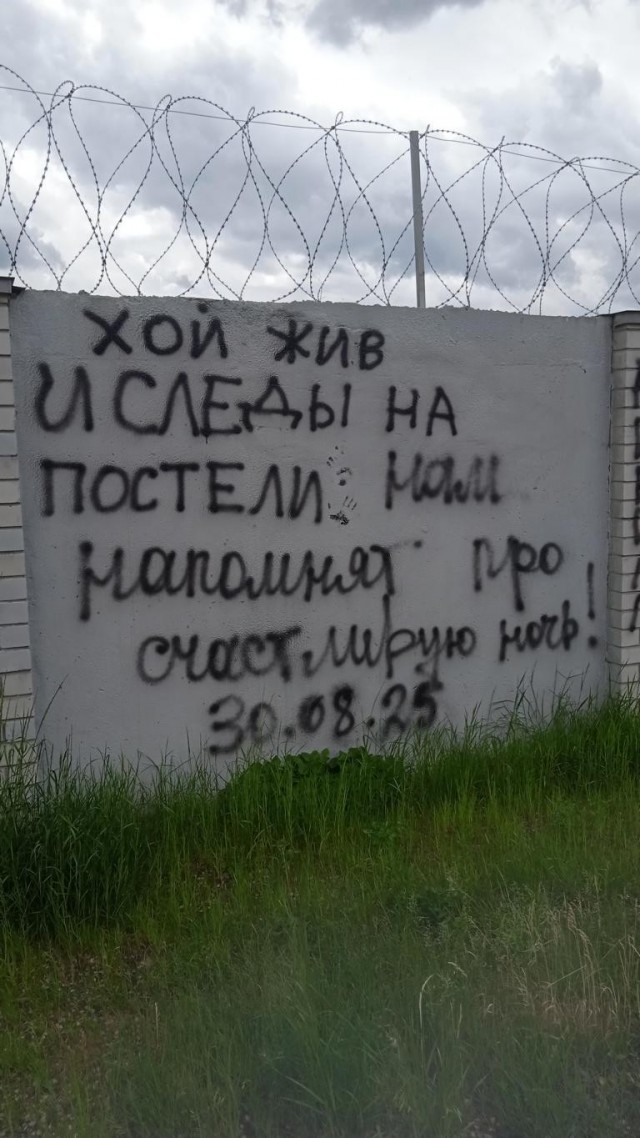 ХОЙ ЖИВ
И СЛЕДЫ НА
ПОСТЕЛИ нам
напомнят про
счастливую ночь!
30.08.25